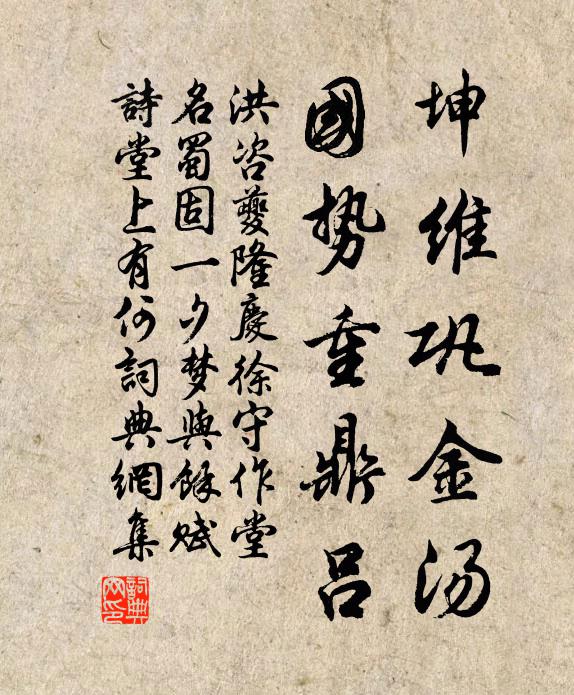 坤维巩金汤
國势重鼎呂
洪咨夔隆慶徐守作堂
名蜀固一夕梦與餘赋
詩堂上有何詞典網集
詞典
网印